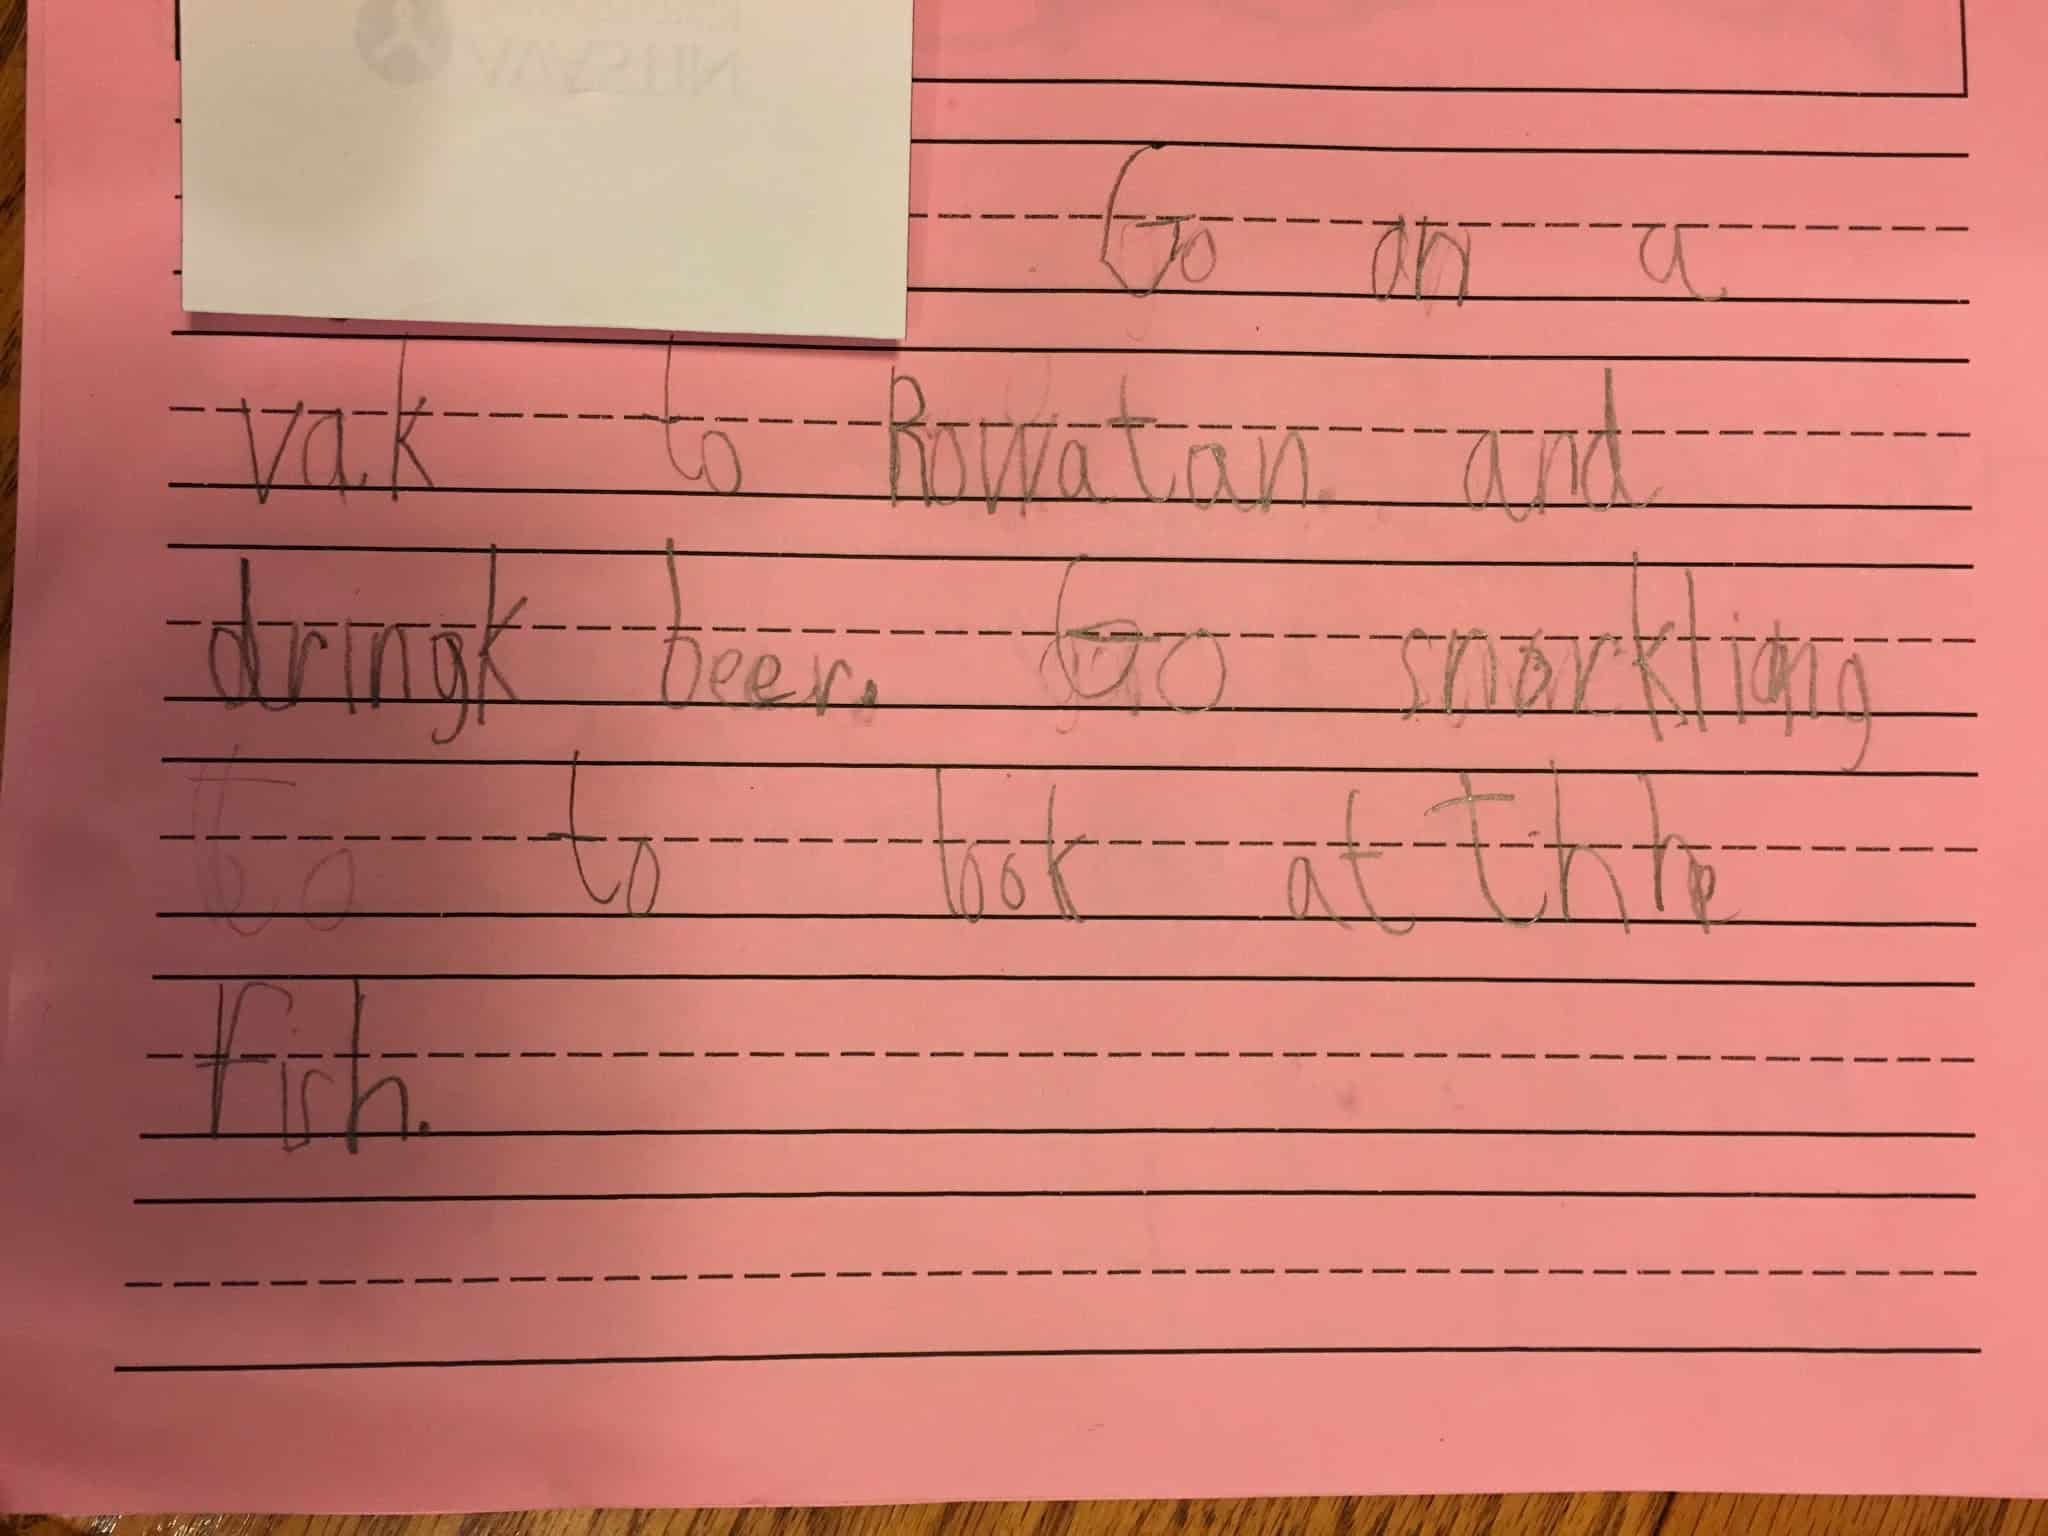 Go on a
vak to Rowatan and
dringk beer. Go snorkliang
to to look at thhe
fish.